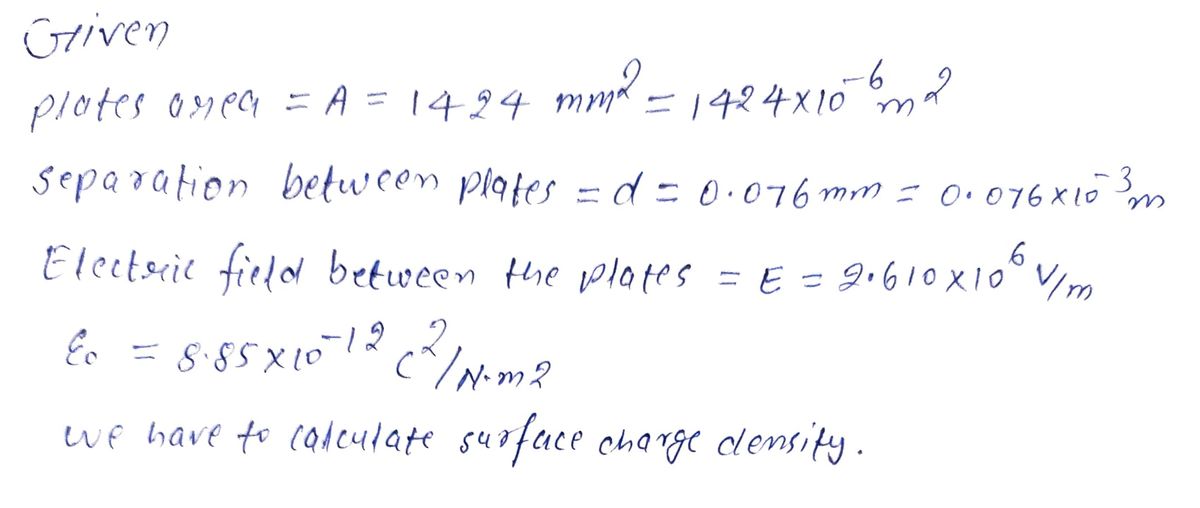 Given
plates area = A = 1424 mm² = 1424×10⁻⁶ m²
separation between plates = d = 0.076 mm = 0.076×10⁻³ m
Electric field between the plates = E = 2.610×10⁶ V/m
ε₀ = 8.85×10⁻¹² C²/N·m2
we have to calculate surface charge density.